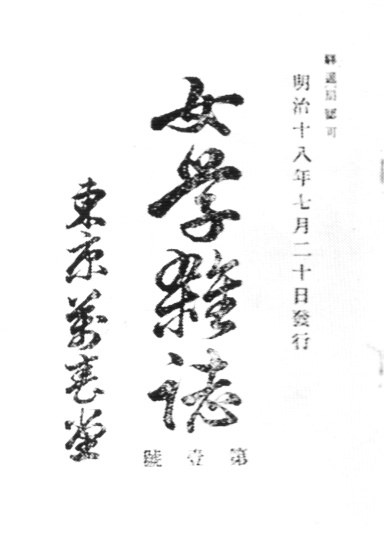 驛遞局認可
明治十八年七月二十日發行
女学雜誌
第壹號
東京萬春堂